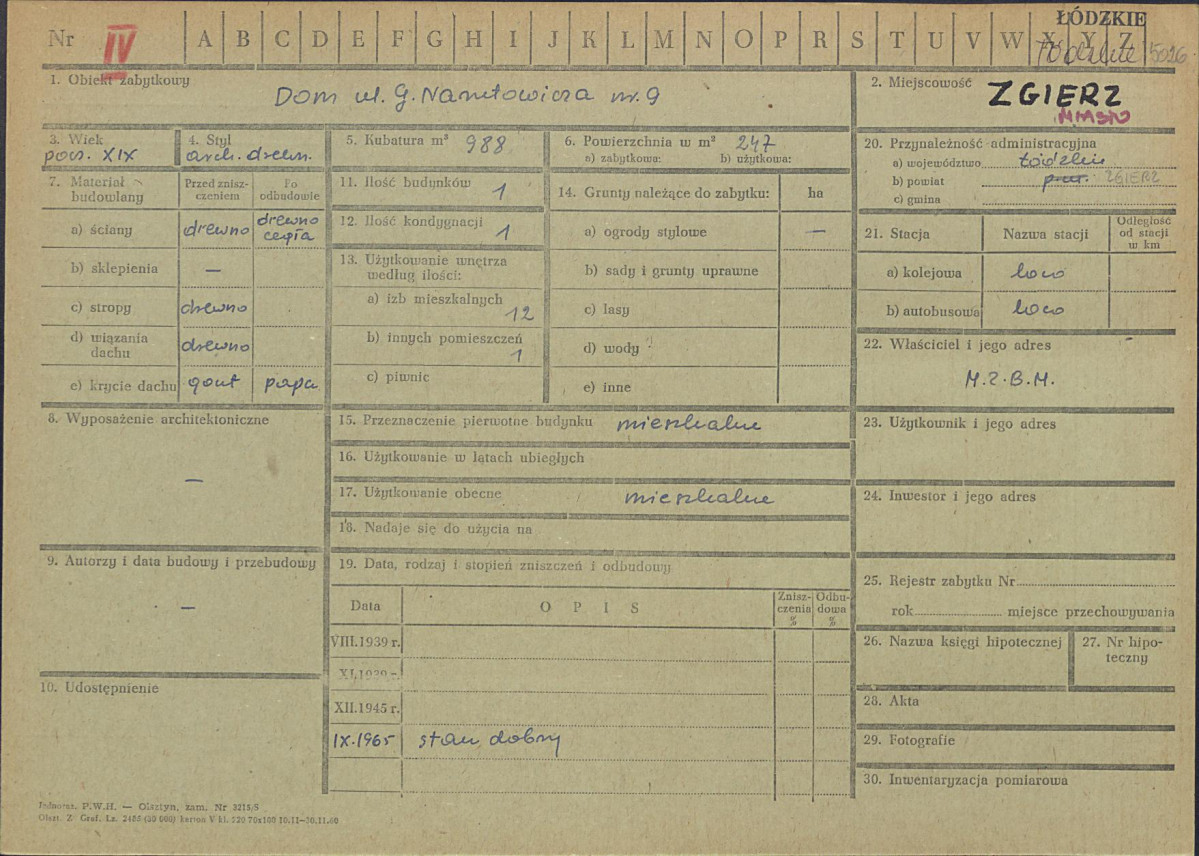 ŁÓDZKIE
Nr IV A B C D E F G H I J K L M N O P R S T U V W X Y Z
łódzkie 5026
1. Obiekt zabytkowy
Dom ul. G. Narutowicza nr. 9
2. Miejscowość ZGIERZ
MIASTO
3. Wiek
pocz. XIX
4. Styl
arch. drewn.
5. Kubatura m³ 988
6. Powierzchnia w m² 247
a) zabytkowa: b) użytkowa:
20. Przynależność administracyjna
a) województwo łódzkie
b) powiat ZGIERZ
c) gmina
7. Materiał budowlany
Przed zniszczeniem
Po odbudowie
a) ściany drewno drewno
cegła
b) sklepienia —
c) stropy drewno
d) wiązania
dachu drewno
e) krycie dachu gont papa
11. Ilość budynków 1
12. Ilość kondygnacji 1
13. Użytkowanie wnętrza
według ilości:
a) izb mieszkalnych 12
b) innych pomieszczeń
1
c) piwnic
14. Grunty należące do zabytku: ha
a) ogrody stylowe —
b) sady i grunty uprawne
c) lasy
d) wody
e) inne
21. Stacja Nazwa stacji Odległość
od stacji
w km
a) kolejowa loco
b) autobusowa loco
22. Właściciel i jego adres
M.Z.B.M.
8. Wyposażenie architektoniczne
—
15. Przeznaczenie pierwotne budynku mieszkalne
16. Użytkowanie w latach ubiegłych
17. Użytkowanie obecne mieszkalne
18. Nadaje się do użycia na
23. Użytkownik i jego adres
24. Inwestor i jego adres
9. Autorzy i data budowy i przebudowy
—
10. Udostępnienie
19. Data, rodzaj i stopień zniszczeń i odbudowy
Data OPIS Znisz-
czenia
% Odbu-
dowa
%
VIII.1939 r.
XI.1939 r.
XII.1945 r.
IX.1965 stan dobry
25. Rejestr zabytku Nr
rok miejsce przechowywania
26. Nazwa księgi hipotecznej
27. Nr hipo-
teczny
28. Akta
29. Fotografie
30. Inwentaryzacja pomiarowa
Jednoraz. P.W.H. — Olsztyn, zam. Nr 3215/S
Olszt. Z. Graf. Lz. 2455 (30 000) karton V kl. 220 70x100 10.11—30.11.60